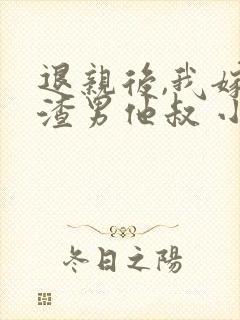 退親後,我嫁
渣男他叔 小
冬日之陽